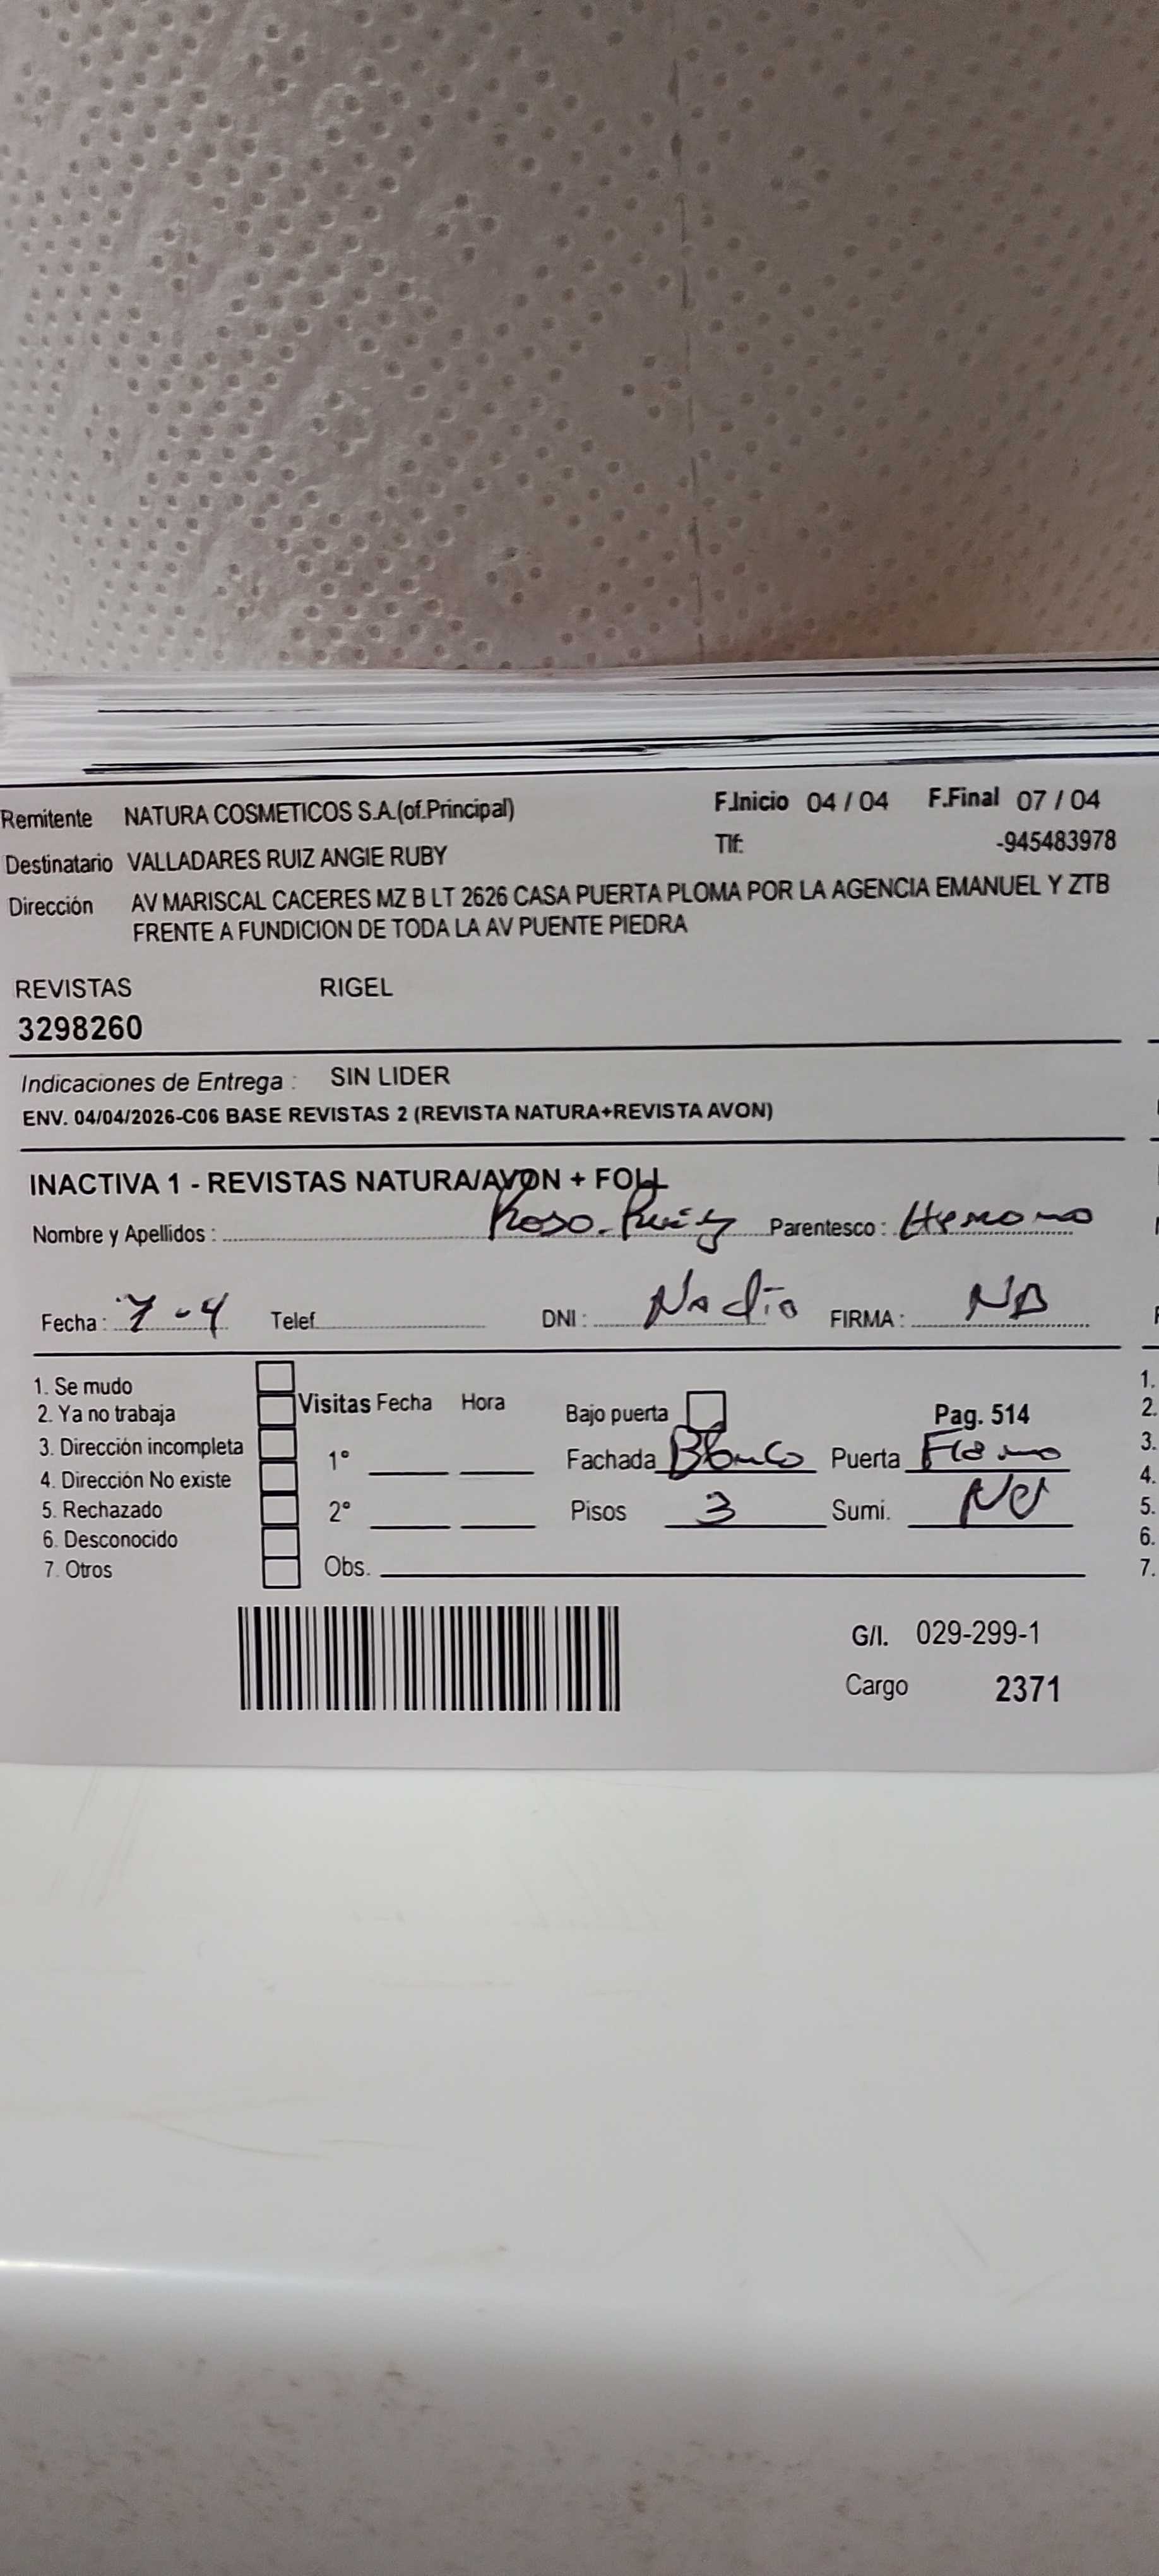 Remitente NATURA COSMETICOS S.A.(of.Principal) F.Inicio 04 / 04 F.Final 07 / 04
Destinatario VALLADARES RUIZ ANGIE RUBY Tlf: -945483978
Dirección AV MARISCAL CACERES MZ B LT 2626 CASA PUERTA PLOMA POR LA AGENCIA EMANUEL Y ZTB
FRENTE A FUNDICION DE TODA LA AV PUENTE PIEDRA
REVISTAS RIGEL
3298260
Indicaciones de Entrega : SIN LIDER
ENV. 04/04/2026-C06 BASE REVISTAS 2 (REVISTA NATURA+REVISTA AVON)
INACTIVA 1 - REVISTAS NATURA/AVON + FOLL
Nombre y Apellidos : Rosa Ruiz Parentesco :
Fecha : 7-4 Telef. DNI : FIRMA :
1. Se mudo
2. Ya no trabaja Visitas Fecha Hora Bajo puerta Pag. 514
3. Dirección incompleta 1° Fachada Blanco Puerta
4. Dirección No existe
5. Rechazado 2° Pisos 3 Sumi.
6. Desconocido
7. Otros Obs.
G/I. 029-299-1
Cargo 2371
1.
2.
3.
4.
5.
6.
7.